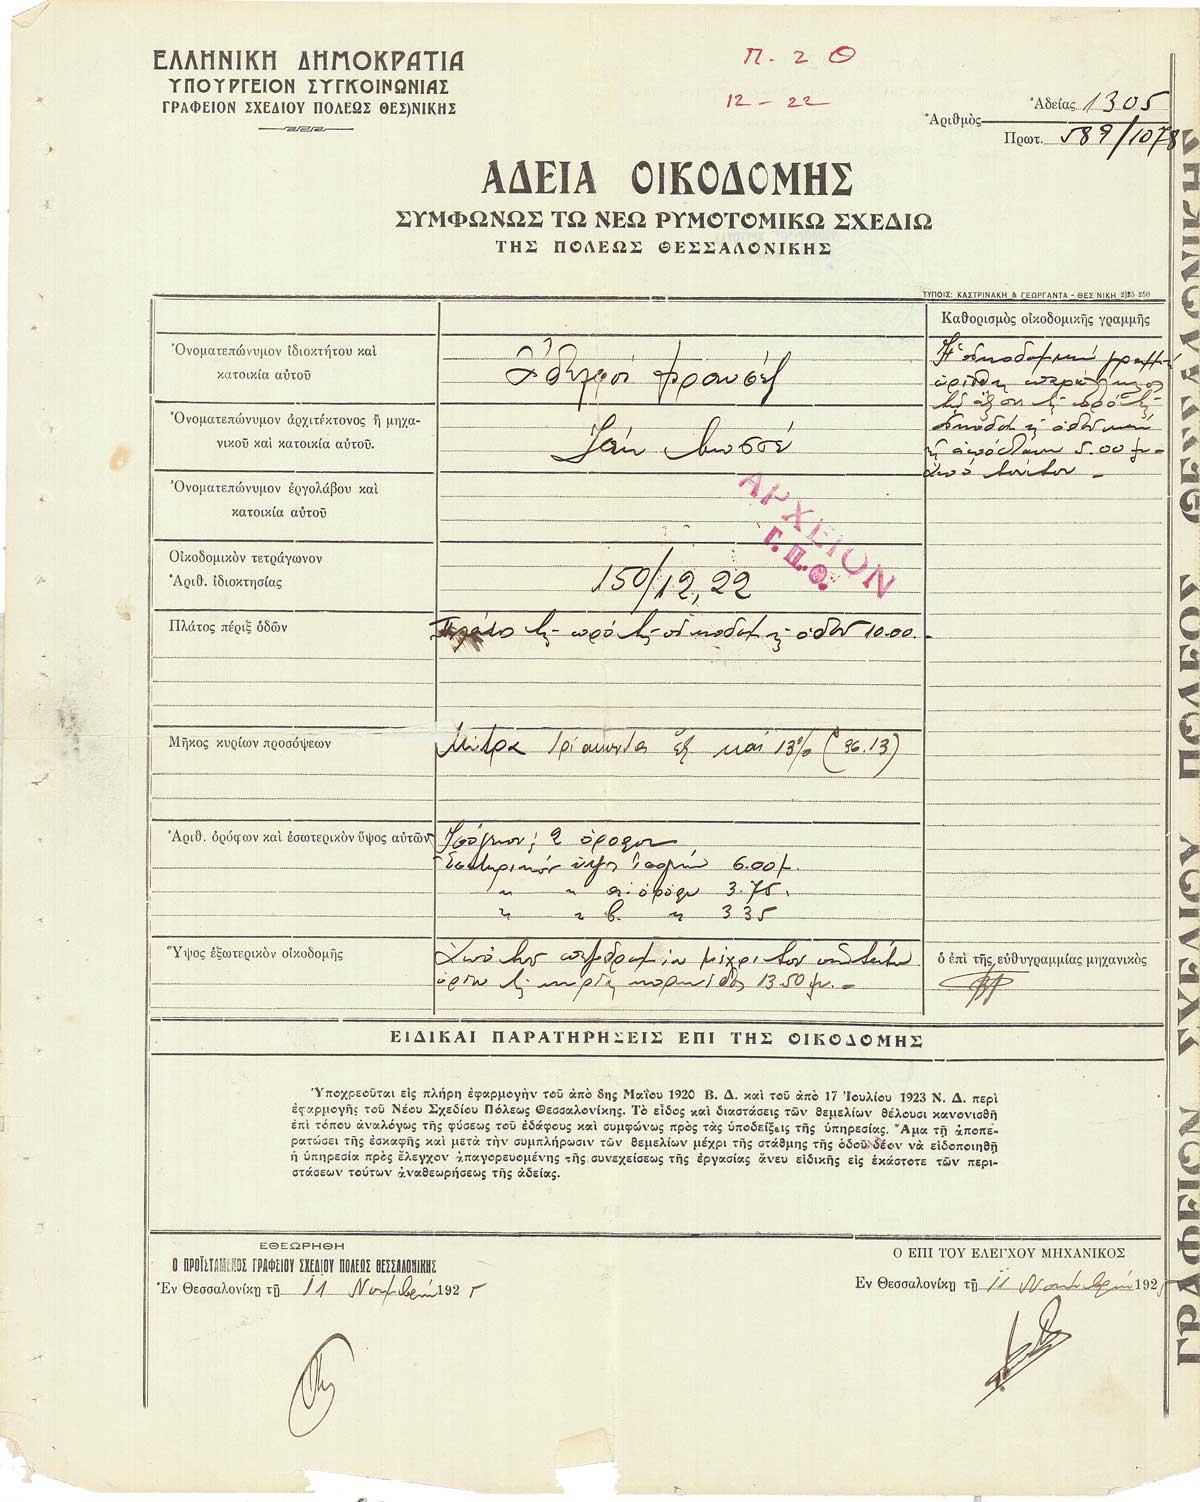 ΕΛΛΗΝΙΚΗ ΔΗΜΟΚΡΑΤΙΑ
ΥΠΟΥΡΓΕΙΟΝ ΣΥΓΚΟΙΝΩΝΙΑΣ
ΓΡΑΦΕΙΟΝ ΣΧΕΔΙΟΥ ΠΟΛΕΩΣ ΘΕΣ)ΝΙΚΗΣ
Π. 2 Θ
12 - 22
Ἀριθμὸς
Ἀδείας 1305
Πρωτ. 589/1078
ΑΔΕΙΑ ΟΙΚΟΔΟΜΗΣ
ΣΥΜΦΩΝΩΣ ΤΩ ΝΕΩ ΡΥΜΟΤΟΜΙΚΩ ΣΧΕΔΙΩ
ΤΗΣ ΠΟΛΕΩΣ ΘΕΣΣΑΛΟΝΙΚΗΣ
ΤΥΠΟΙΣ: ΚΑΣΤΡΙΝΑΚΗ & ΓΕΩΡΓΑΝΤΑ - ΘΕΣ)ΝΙΚΗ 2)25 250
Καθορισμὸς οἰκοδομικῆς γραμμῆς
Ὀνοματεπώνυμον ἰδιοκτήτου καὶ
κατοικία αὐτοῦ
Ἀδελφοὶ Φρανσὲζ
Ἡ οἰκοδομικὴ γραμμὴ
ὡρίσθη παραλλήλως
τῆς πρὸ τῆς
οἰκοδομῆς ὁδοῦ καὶ
ἀπόστασιν 5.00 μ.
ἀπὸ τούτου -
Ὀνοματεπώνυμον ἀρχιτέκτονος ἢ μηχα-
νικοῦ καὶ κατοικία αὐτοῦ.
Ζὰκ Μοσσὲ
Ὀνοματεπώνυμον ἐργολάβου καὶ
κατοικία αὐτοῦ
ΑΡΧΕΙΟΝ
Γ.Π.Θ.
Οἰκοδομικὸν τετράγωνον
Ἀριθ. ἰδιοκτησίας
150/12,22
Πλάτος πέριξ ὁδῶν
Πλάτος τῆς πρὸ τῆς οἰκοδομῆς ὁδοῦ 10.00.-
Μῆκος κυρίων προσόψεων
Μέτρα τριάκοντα ἓξ καὶ 13% (36.13)
Ἀριθ. ὀρόφων καὶ ἐσωτερικὸν ὕψος αὐτῶν
Ἰσόγειον, 2 ὄροφοι
Ἐσωτερικὸν ὕψος ἰσογείου 6.00 μ.
" " α. ὀρόφου 3.75.
" " β. " 335
Ὕψος ἐξωτερικὸν οἰκοδομῆς
Ἀπὸ τοῦ πεζοδρομίου μέχρι τοῦ
ὁρίου τῆς κυρίας κορνίζας 13.50 μ. -
ὁ ἐπὶ τῆς εὐθυγραμμίας μηχανικὸς
ΕΙΔΙΚΑΙ ΠΑΡΑΤΗΡΗΣΕΙΣ ΕΠΙ ΤΗΣ ΟΙΚΟΔΟΜΗΣ
Ὑποχρεοῦται εἰς πλήρη ἐφαρμογὴν τοῦ ἀπὸ 8ης Μαΐου 1920 Β. Δ. καὶ τοῦ ἀπὸ 17 Ἰουλίου 1923 Ν. Δ. περὶ
ἐφαρμογῆς τοῦ Νέου Σχεδίου Πόλεως Θεσσαλονίκης. Τὸ εἶδος καὶ διαστάσεις τῶν θεμελίων θέλουσι κανονισθῆ
ἐπὶ τόπου ἀναλόγως τῆς φύσεως τοῦ ἐδάφους καὶ συμφώνως πρὸς τὰς ὑποδείξεις τῆς ὑπηρεσίας. Ἅμα τῇ ἀποπε-
ρατώσει τῆς ἐσκαφῆς καὶ μετὰ τὴν συμπλήρωσιν τῶν θεμελίων μέχρι τῆς στάθμης τῆς ὁδοῦ δέον νὰ εἰδοποιηθῇ
ἡ ὑπηρεσία πρὸς ἔλεγχον ἀπαγορευομένης τῆς συνεχίσεως τῆς ἐργασίας ἄνευ εἰδικῆς εἰς ἑκάστοτε τῶν περι-
στάσεων τούτων ἀναθεωρήσεως τῆς ἀδείας.
ΕΘΕΩΡΗΘΗ
Ο ΠΡΟΪΣΤΑΜΕΝΟΣ ΓΡΑΦΕΙΟΥ ΣΧΕΔΙΟΥ ΠΟΛΕΩΣ ΘΕΣΣΑΛΟΝΙΚΗΣ
Ἐν Θεσσαλονίκῃ τῇ 11 Νοεμβρίου 1925
Ο ΕΠΙ ΤΟΥ ΕΛΕΓΧΟΥ ΜΗΧΑΝΙΚΟΣ
Ἐν Θεσσαλονίκῃ τῇ 11 Νοεμβρίου 1925
ΓΡΑΦΕΙΟΝ ΣΧΕΔΙΟΥ ΠΟΛΕΩΣ ΘΕΣΣΑΛΟΝΙΚΗΣ